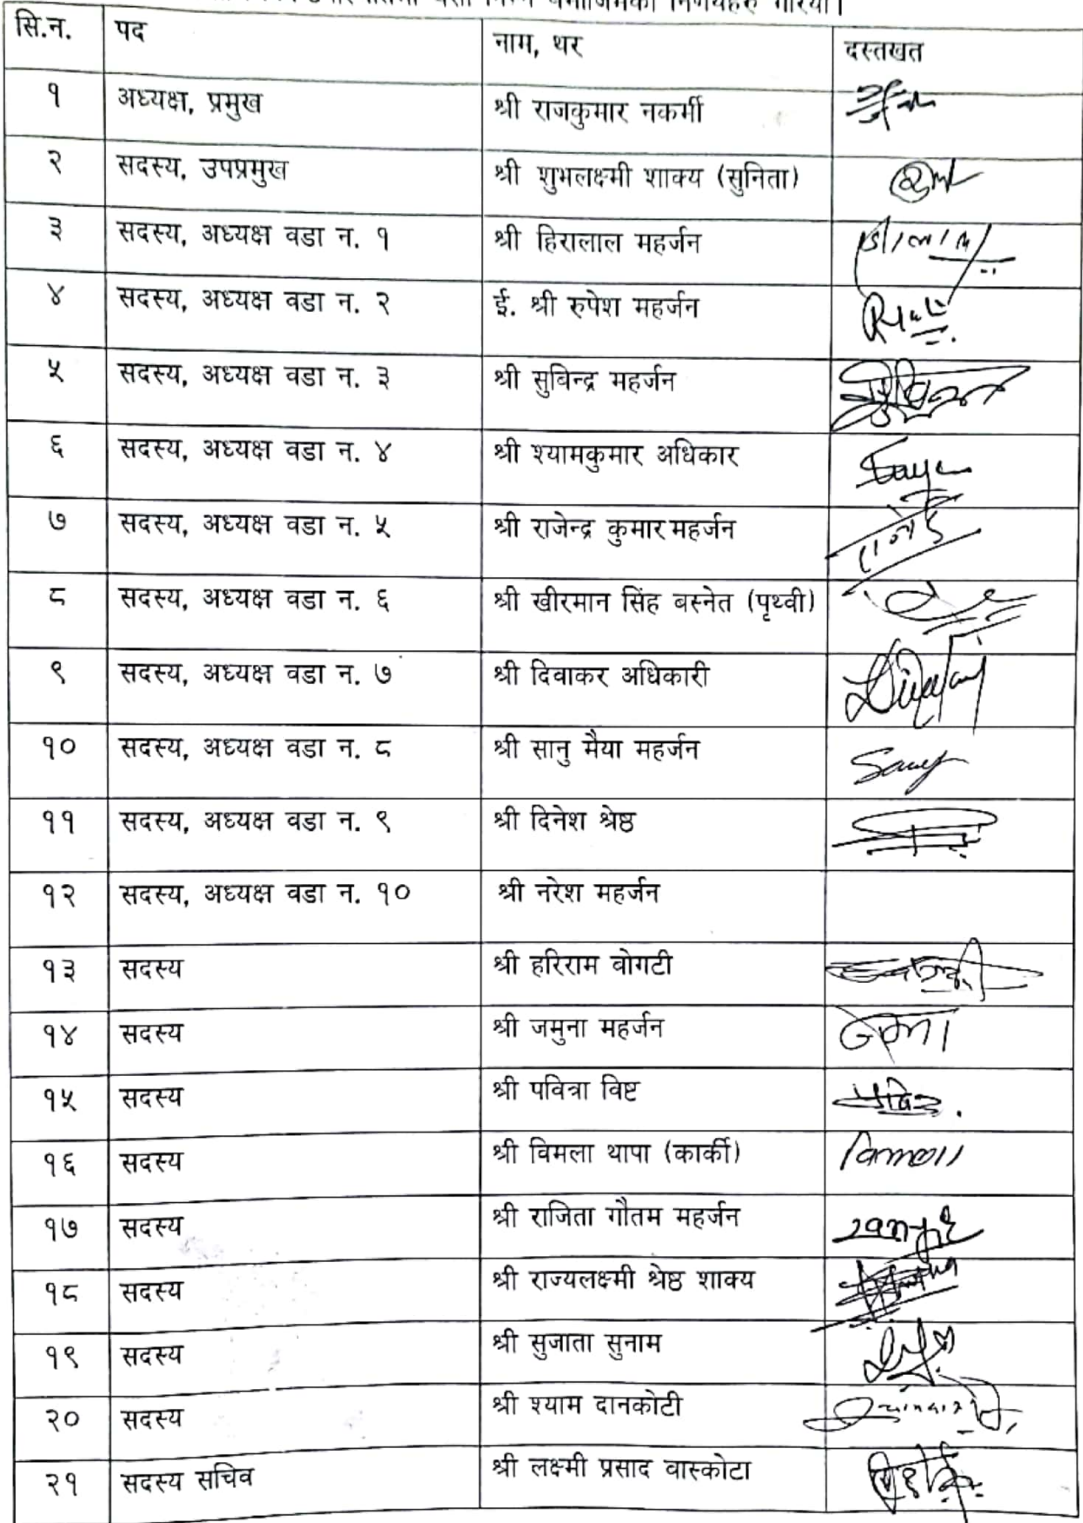 सि.न. पद नाम, थर दस्तखत
१ अध्यक्ष, प्रमुख श्री राजकुमार नकर्मी
२ सदस्य, उपप्रमुख श्री शुभलक्ष्मी शाक्य (सुनिता)
३ सदस्य, अध्यक्ष वडा न. १ श्री हिरालाल महर्जन
४ सदस्य, अध्यक्ष वडा न. २ ई. श्री रुपेश महर्जन
५ सदस्य, अध्यक्ष वडा न. ३ श्री सुबिन्द्र महर्जन
६ सदस्य, अध्यक्ष वडा न. ४ श्री श्यामकुमार अधिकार
७ सदस्य, अध्यक्ष वडा न. ५ श्री राजेन्द्र कुमार महर्जन
८ सदस्य, अध्यक्ष वडा न. ६ श्री खीरमान सिंह बस्नेत (पृथ्वी)
९ सदस्य, अध्यक्ष वडा न. ७ श्री दिवाकर अधिकारी
१० सदस्य, अध्यक्ष वडा न. ८ श्री सानु मैया महर्जन
११ सदस्य, अध्यक्ष वडा न. ९ श्री दिनेश श्रेष्ठ
१२ सदस्य, अध्यक्ष वडा न. १० श्री नरेश महर्जन
१३ सदस्य श्री हरिराम वोगटी
१४ सदस्य श्री जमुना महर्जन
१५ सदस्य श्री पवित्रा विष्ट
१६ सदस्य श्री विमला थापा (कार्की)
१७ सदस्य श्री राजिता गौतम महर्जन
१८ सदस्य श्री राज्यलक्ष्मी श्रेष्ठ शाक्य
१९ सदस्य श्री सुजाता सुनाम
२० सदस्य श्री श्याम दानकोटी
२१ सदस्य सचिव श्री लक्ष्मी प्रसाद वास्कोटा